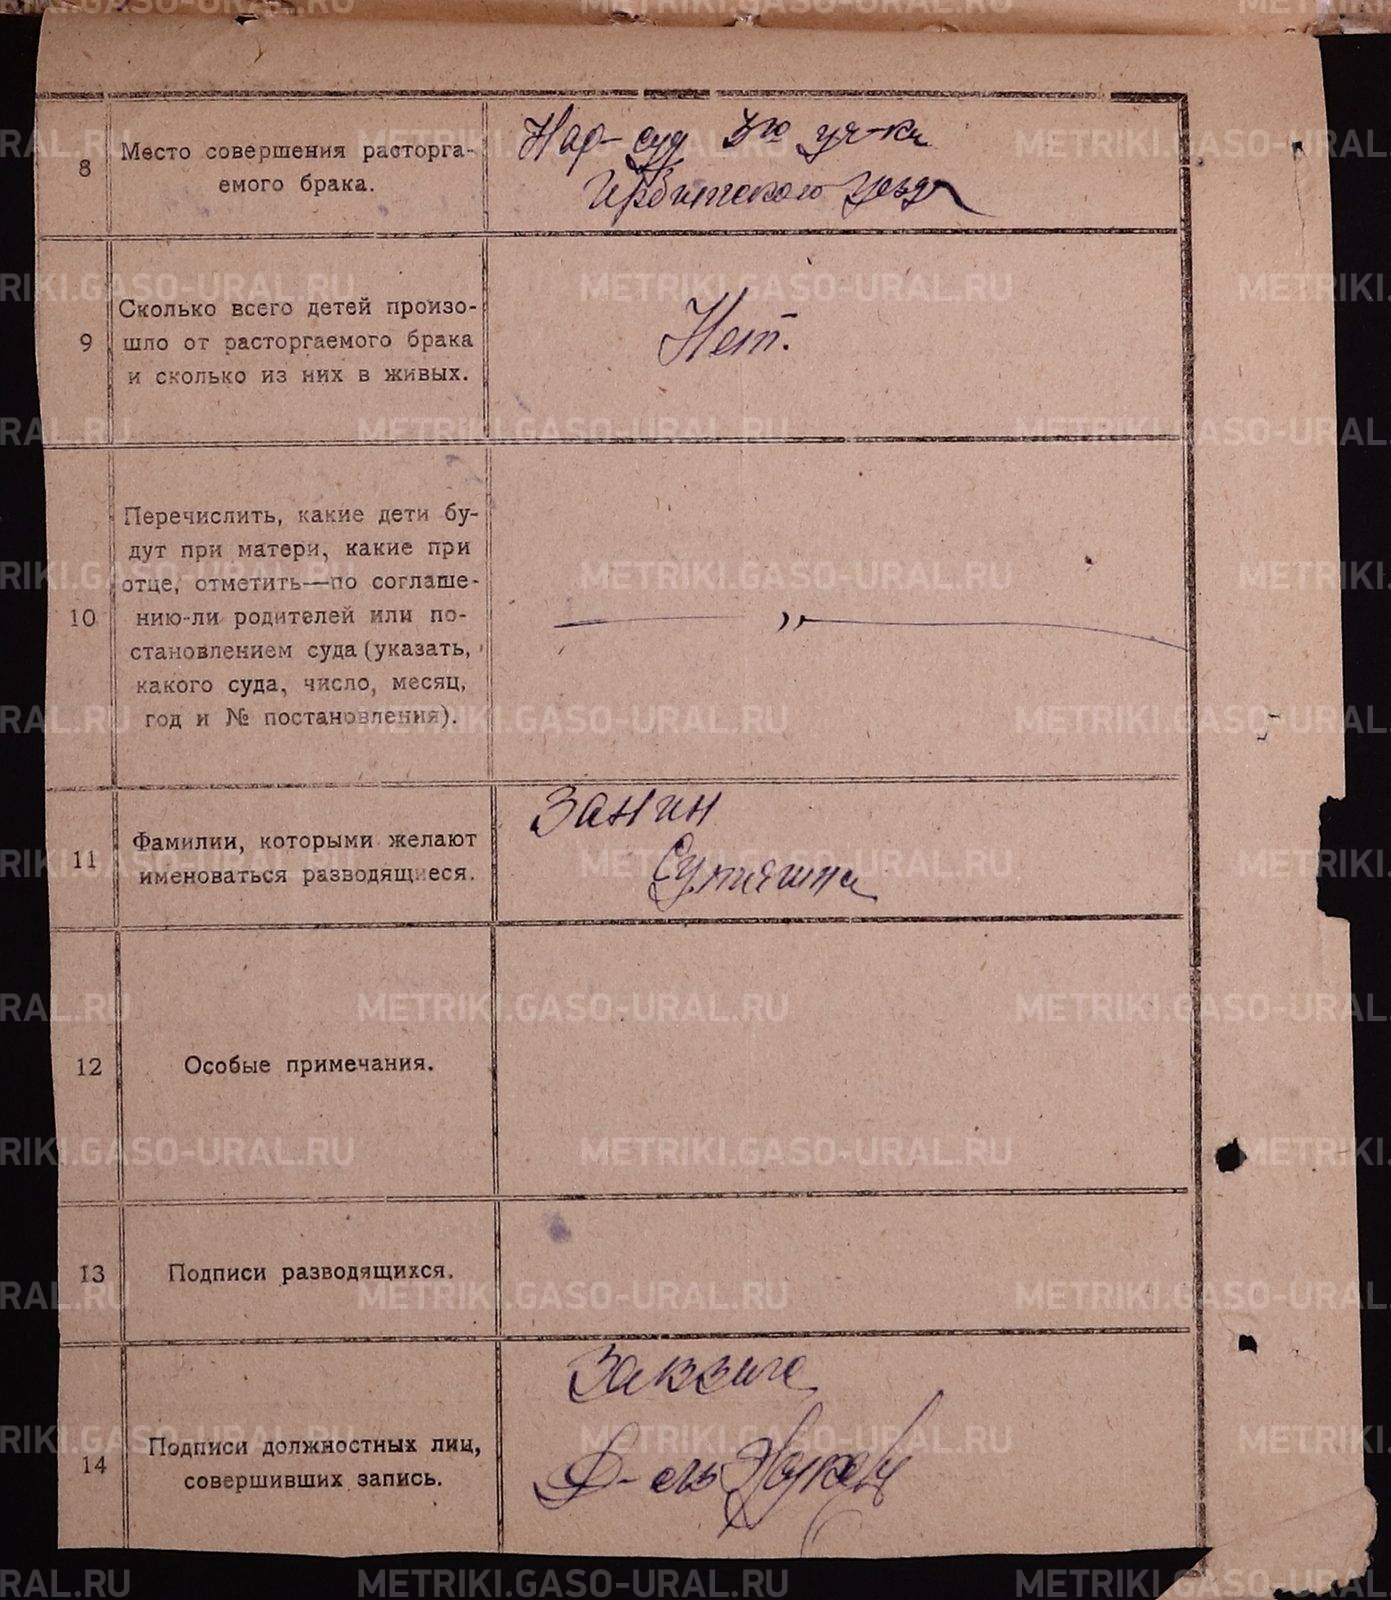 8
Место совершения расторга-
емого брака.
Нар-суд 3го уч-ка
Ирбитского уезда
9
Сколько всего детей произо-
шло от расторгаемого брака
и сколько из них в живых.
Нет.
10
Перечислить, какие дети бу-
дут при матери, какие при
отце, отметить—по соглаше-
нию-ли родителей или по-
становлением суда (указать,
какого суда, число, месяц,
год и № постановления).
— „ —
11
Фамилии, которыми желают
именоваться разводящиеся.
Занин
12
Особые примечания.
13
Подписи разводящихся.
14
Подписи должностных лиц,
совершивших запись.
Д-ель
METRIKI.GASO-URAL.RU